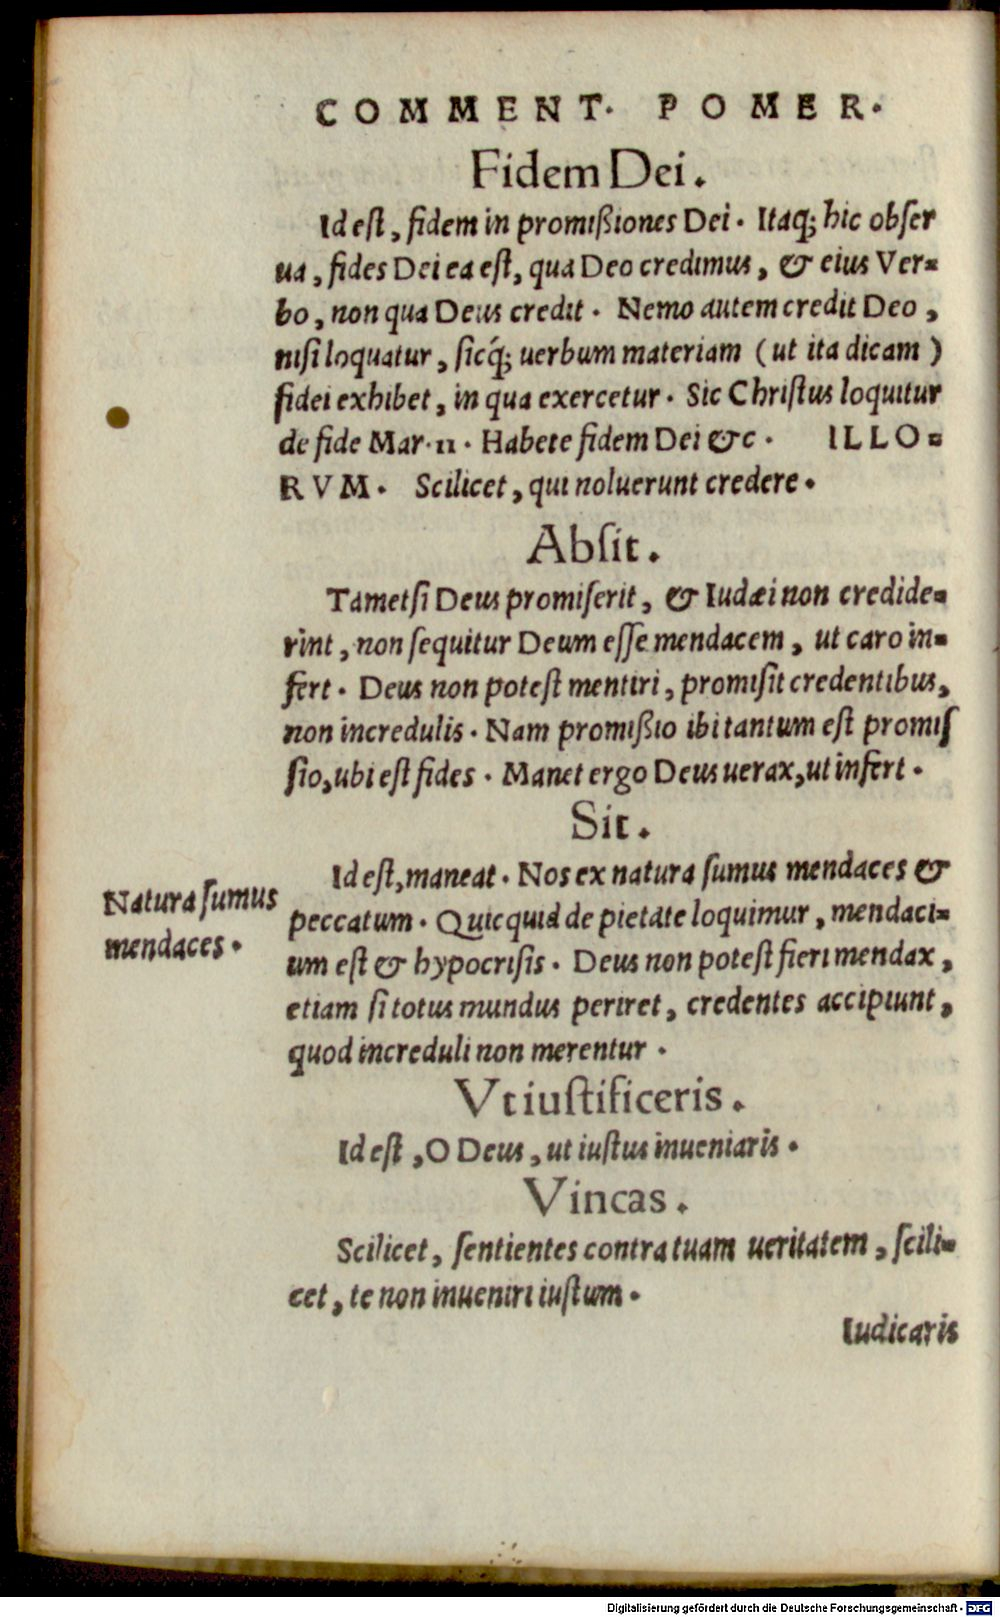 COMMENT. POMER.
Fidem Dei.
Id eſt, fidem in promißiones Dei. Itaq; hic obſer
ua, fides Dei ea eſt, qua Deo credimus, & eius Ver-
bo, non qua Deus credit. Nemo autem credit Deo,
niſi loquatur, ſicq́; uerbum materiam (ut ita dicam)
fidei exhibet, in qua exercetur. Sic Chriſtus loquitur
de fide Mar. 11. Habete fidem Dei &c. ILLO-
RVM. Scilicet, qui noluerunt credere.
Abſit.
Tametſi Deus promiſerit, & Iudæi non credide-
rint, non ſequitur Deum eſſe mendacem, ut caro in-
fert. Deus non poteſt mentiri, promiſit credentibus,
non incredulis. Nam promißio ibi tantum eſt promiſ
ſio, ubi eſt fides. Manet ergo Deus uerax, ut infert.
Sit.
Id eſt, maneat. Nos ex natura ſumus mendaces &
Natura ſumus
mendaces.
peccatum. Quicquid de pietate loquimur, mendaci-
um eſt & hypocriſis. Deus non poteſt fieri mendax,
etiam ſi totus mundus periret, credentes accipiunt,
quod increduli non merentur.
Vt iuſtificeris.
Id eſt, O Deus, ut iuſtus inueniaris.
Vincas.
Scilicet, ſentientes contra tuam ueritatem, ſcili-
cet, te non inueniri iuſtum.
Iudicaris
Digitalisierung gefördert durch die Deutsche Forschungsgemeinschaft - DFG